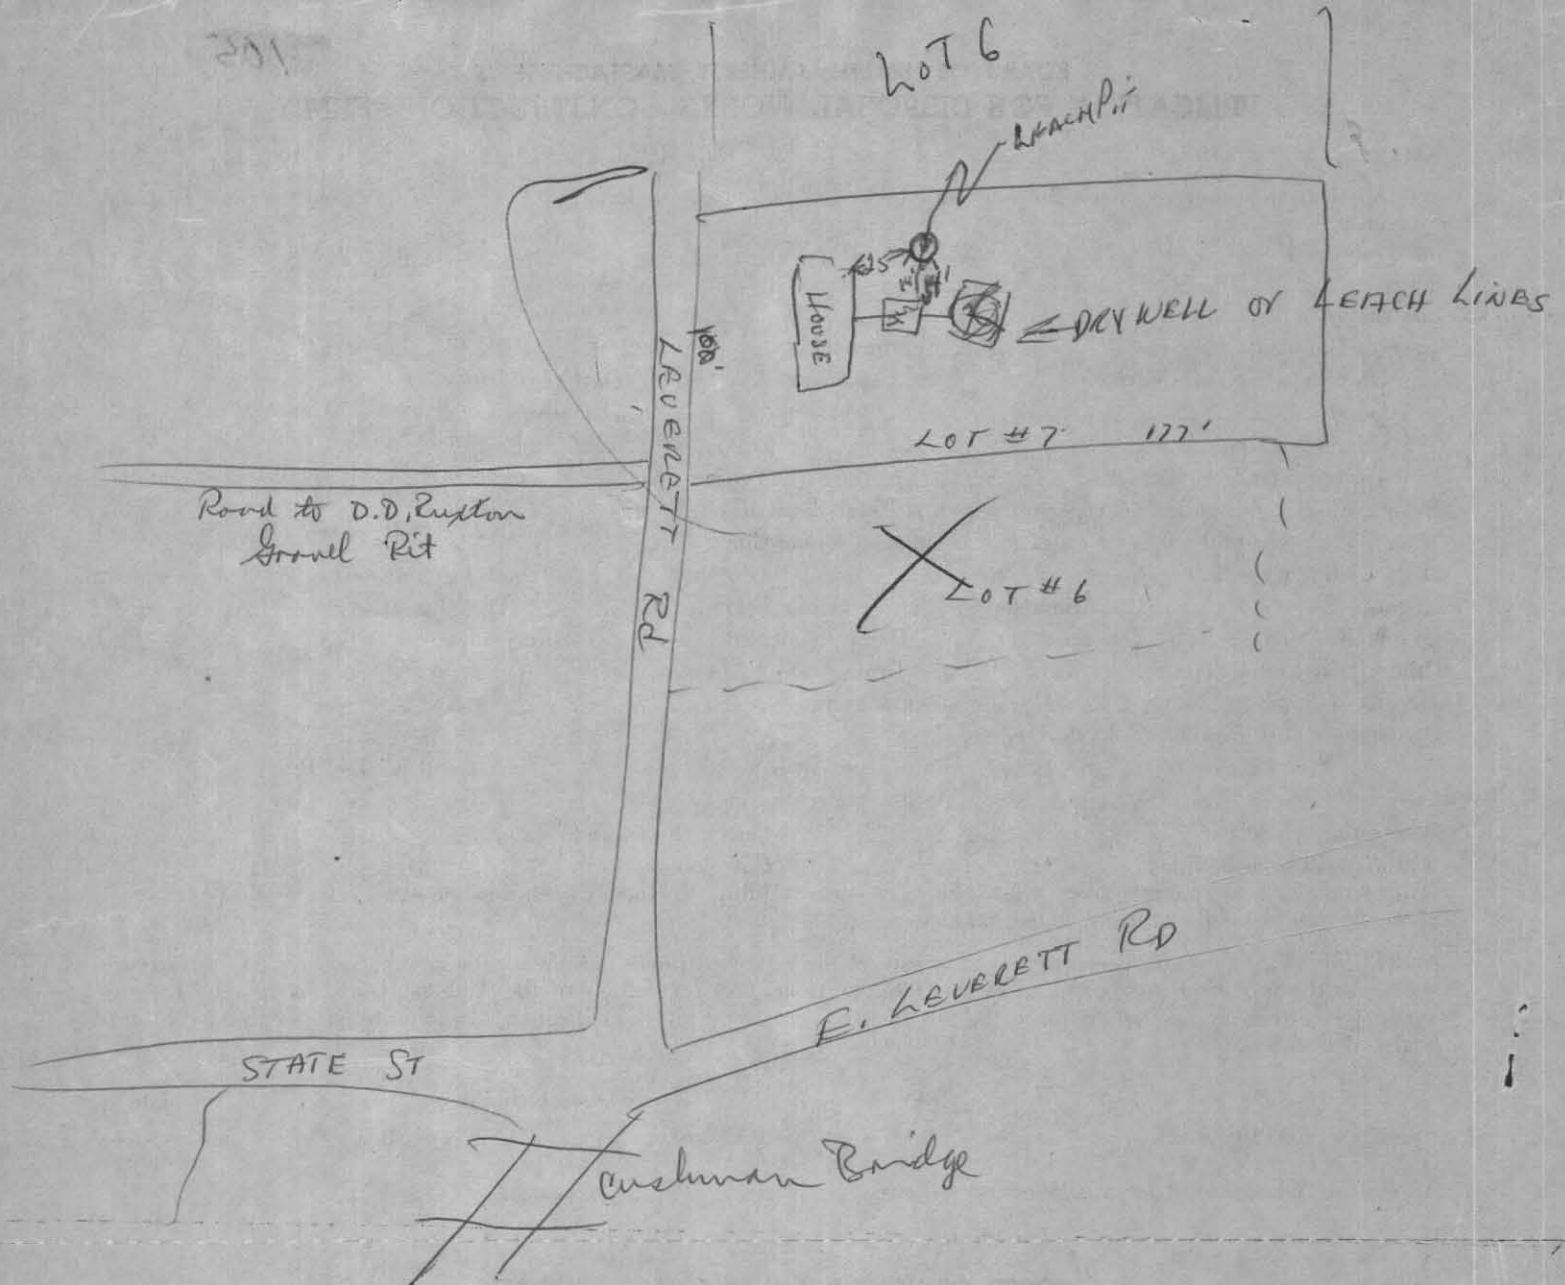 LOT 6
LEACH Pit
25'
HOUSE
DRYWELL or LEACH LINES
100'
LEVERETT Rd
LOT #7 177'
Road to D.D. Ruxton
Gravel Pit
LOT #6
E. LEVERETT RD
STATE ST
Cushman Bridge